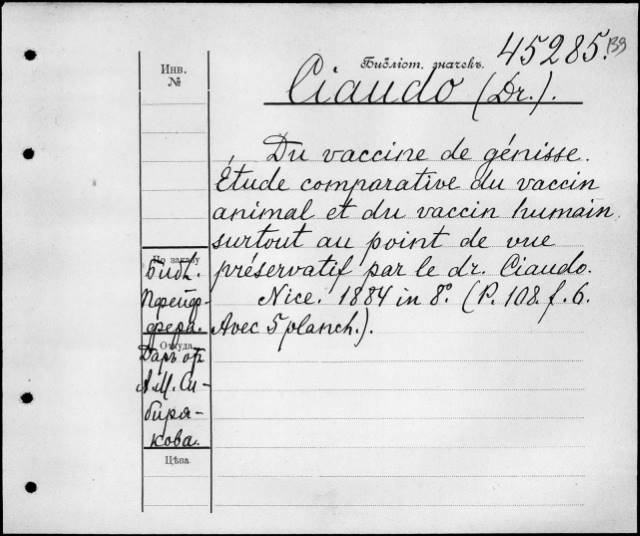 Библіот. значекъ. 45285.
139
Инв.
№
Ciaudo (Dr.).
Du vaccine de génisse.
Étude comparative du vaccin
animal et du vaccin humain
surtout au point de vue
préservatif par le dr. Ciaudo.
Nice. 1884 in 8°. (P. 108. f. 6.
Avec 5 planch.).
По заказу
Библ.
Пфейф-
фера.
Откуда.
Даръ от
А. М. Си-
биря-
кова.
Цѣна.